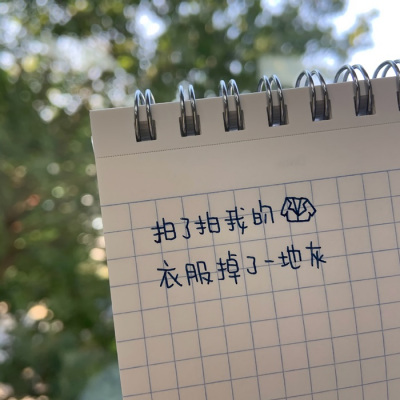 拍了拍我的
衣服掉了一地灰